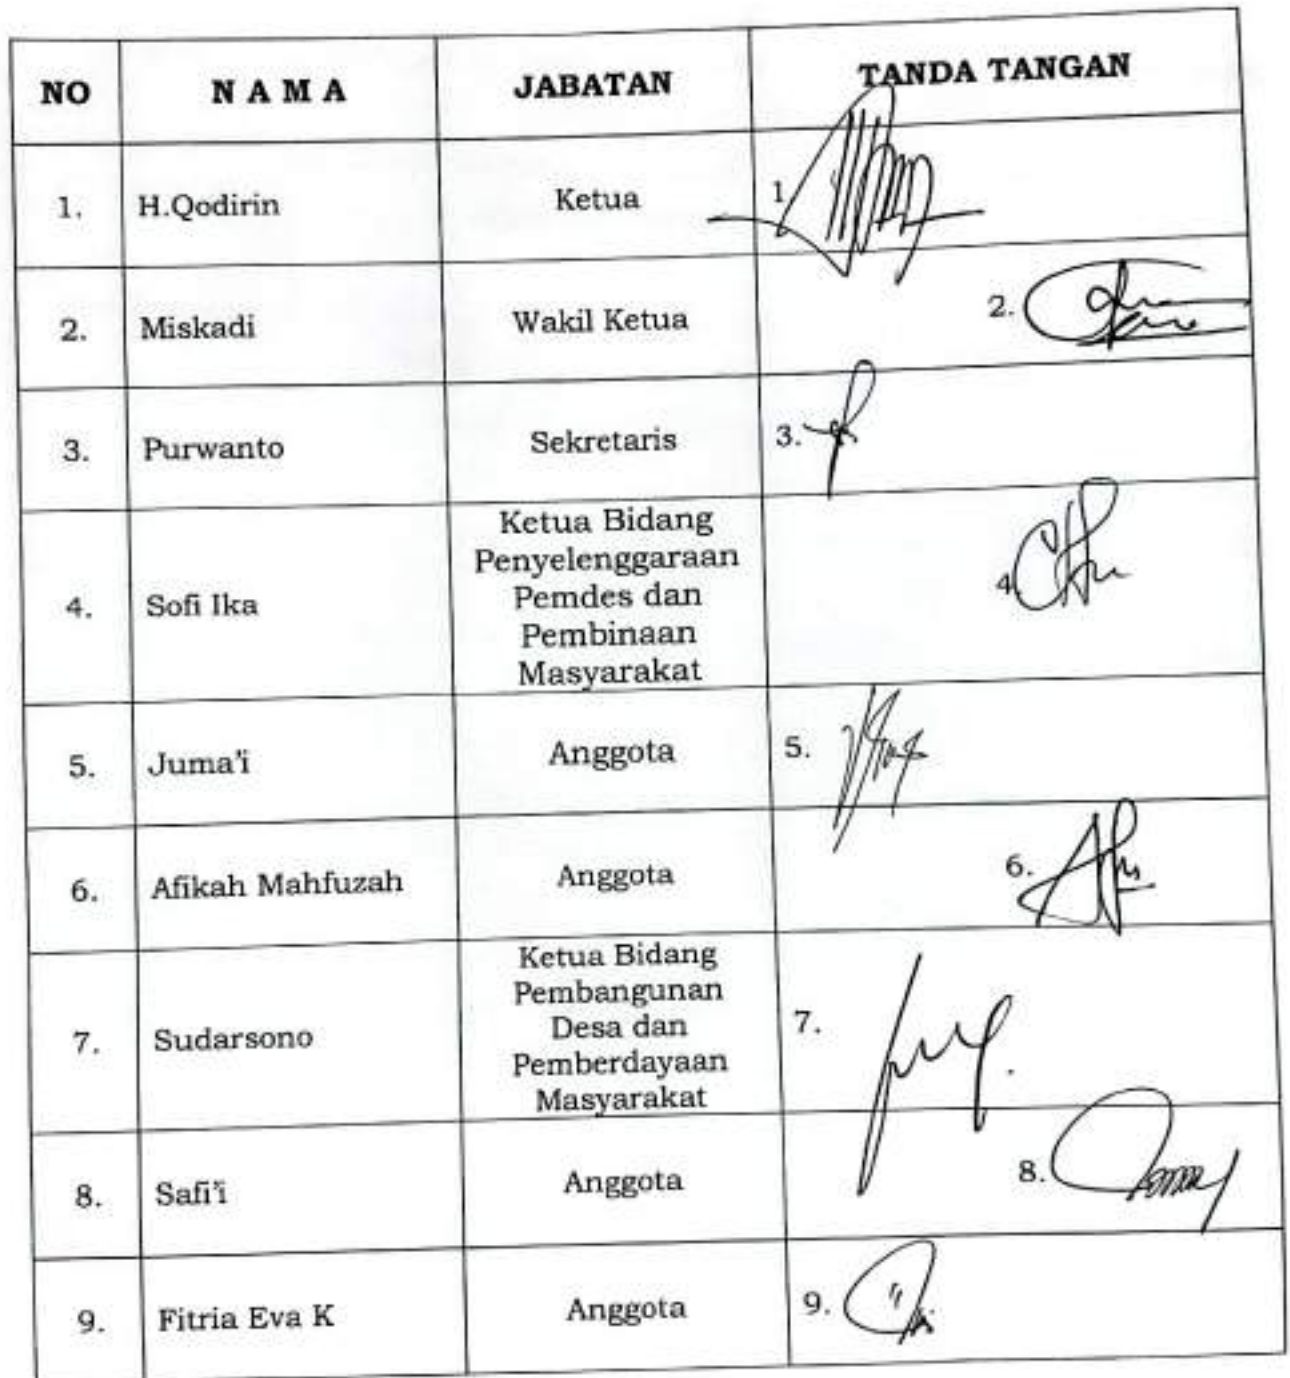 NO N A M A JABATAN TANDA TANGAN
1. H.Qodirin Ketua 1
2. Miskadi Wakil Ketua 2.
3. Purwanto Sekretaris 3.
Ketua Bidang
Penyelenggaraan
4. Sofi Ika Pemdes dan 4
Pembinaan
Masyarakat
5. Juma'i Anggota 5.
6. Afikah Mahfuzah Anggota 6.
Ketua Bidang
Pembangunan
7. Sudarsono Desa dan 7.
Pemberdayaan
Masyarakat
8. Safi'i Anggota 8.
9. Fitria Eva K Anggota 9.